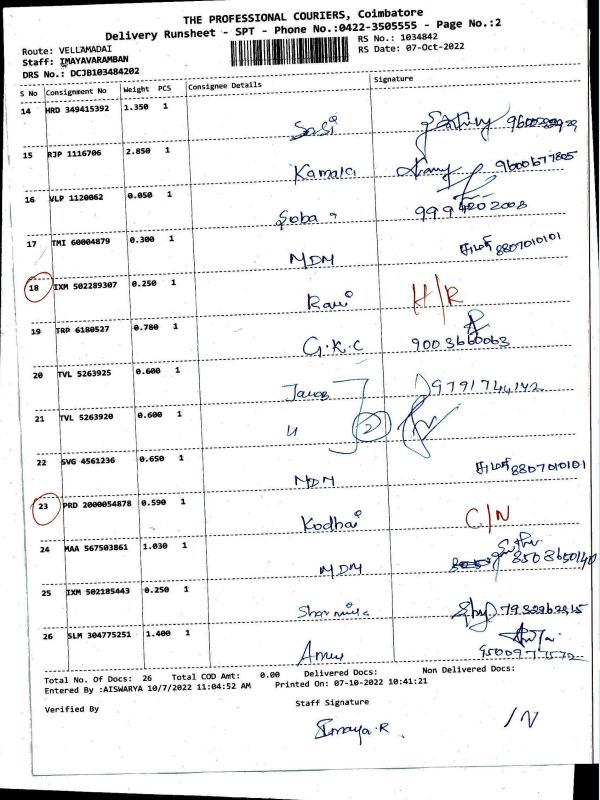 THE PROFESSIONAL COURIERS, Coimbatore
Delivery Runsheet - SPT - Phone No.:0422-3505555 - Page No.:2
Route: VELLAMADAI
RS No.: 1034842
Staff: IMAYAVARAMBAN
RS Date: 07-Oct-2022
DRS No.: DCJB103484202
S No Consignment No Weight PCS Consignee Details Signature
14 HRD 349415392 1.350 1 Sasi
15 RJP 1116706 2.850 1 Kamala 9600677805
16 VLP 1120062 0.050 1 Soba 9994202008
17 TMI 60004879 0.300 1 MDM 8807010101
18 IXM 502289307 0.250 1 Ravi H/R
19 TRP 6180527 0.780 1 G.K.C 9003660063
20 TVL 5263925 0.600 1 9791744142
21 TVL 5263920 0.600 1 " 2
22 SVG 4561236 0.650 1 MDM 8807010101
23 PRD 2000054878 0.590 1 Kodhai C/N
24 MAA 567503861 1.030 1 MDM 8508650140
25 IXM 502185443 0.250 1 Sharmila
26 SLM 304775251 1.400 1
Total No. Of Docs: 26 Total COD Amt: 0.00 Delivered Docs: Non Delivered Docs:
Entered By :AISWARYA 10/7/2022 11:04:52 AM Printed On: 07-10-2022 10:41:21
Verified By Staff Signature
Imaya.R /N